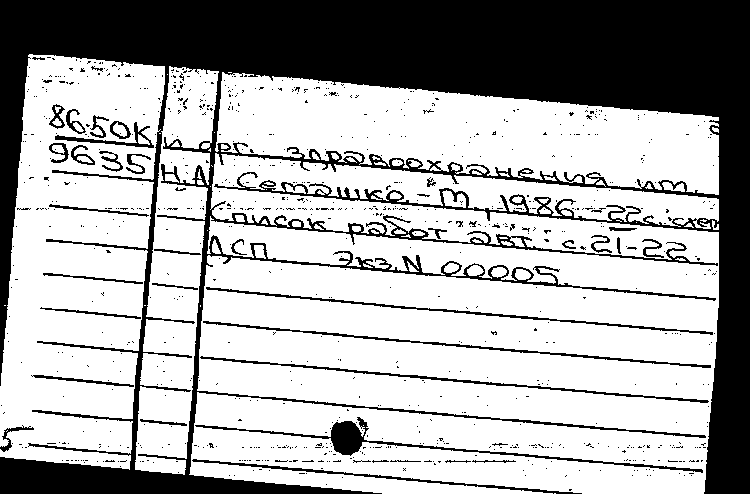 86-50К и орг. здравоохранения им.
9635 Н.А. Семашко. - М., 1986. - 22с.: схем
Список работ авт.: с. 21-22.
ДСП Экз. N 00005.
5